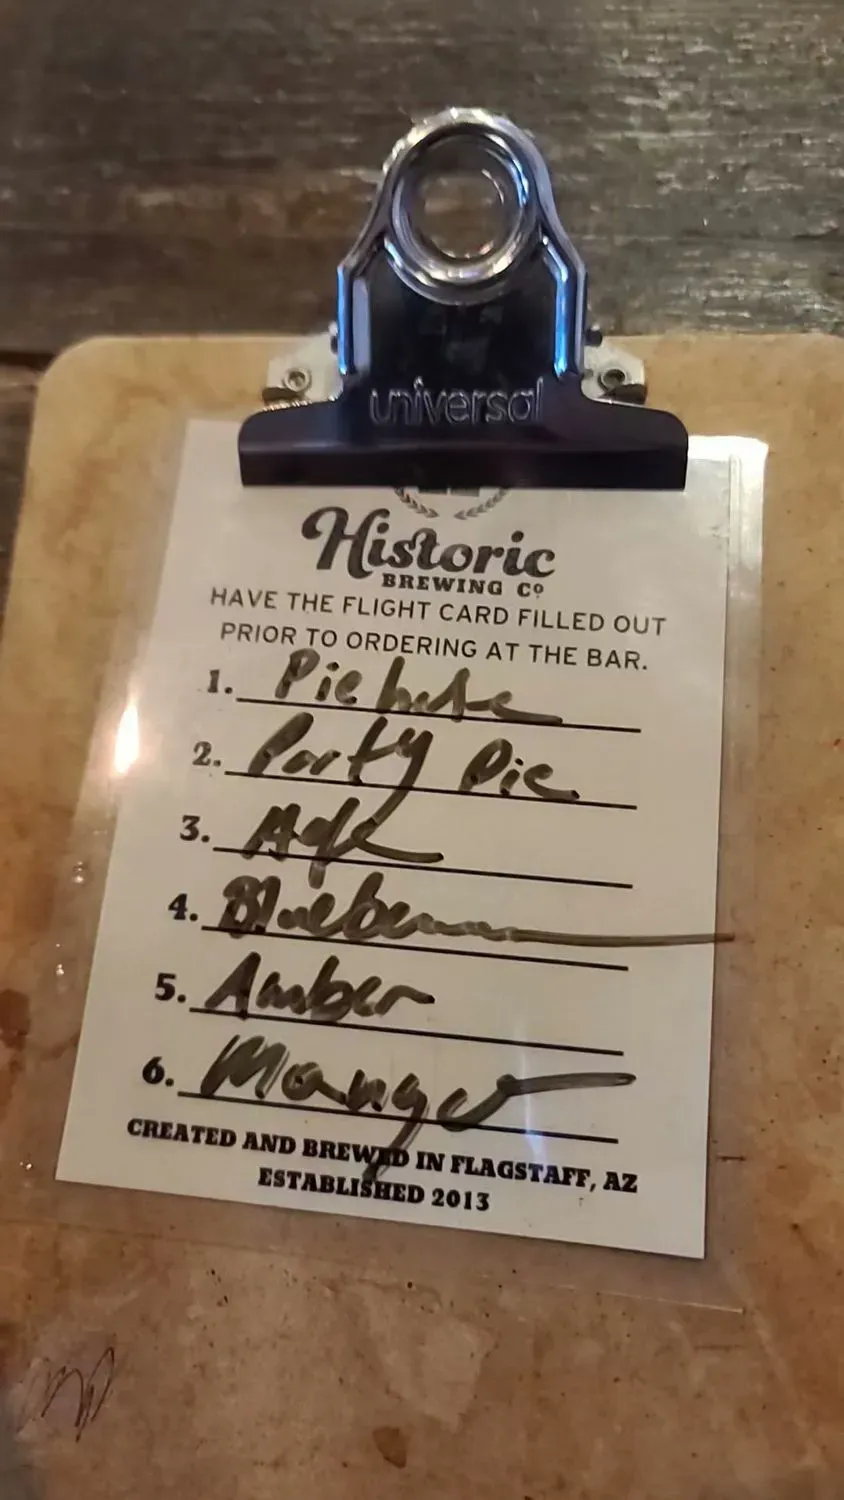 universal
Historic
BREWING Cº
HAVE THE FLIGHT CARD FILLED OUT
PRIOR TO ORDERING AT THE BAR.
1.
2. Party Pie
3.
4.
5. Amber
6. Mango
CREATED AND BREWED IN FLAGSTAFF, AZ
ESTABLISHED 2013